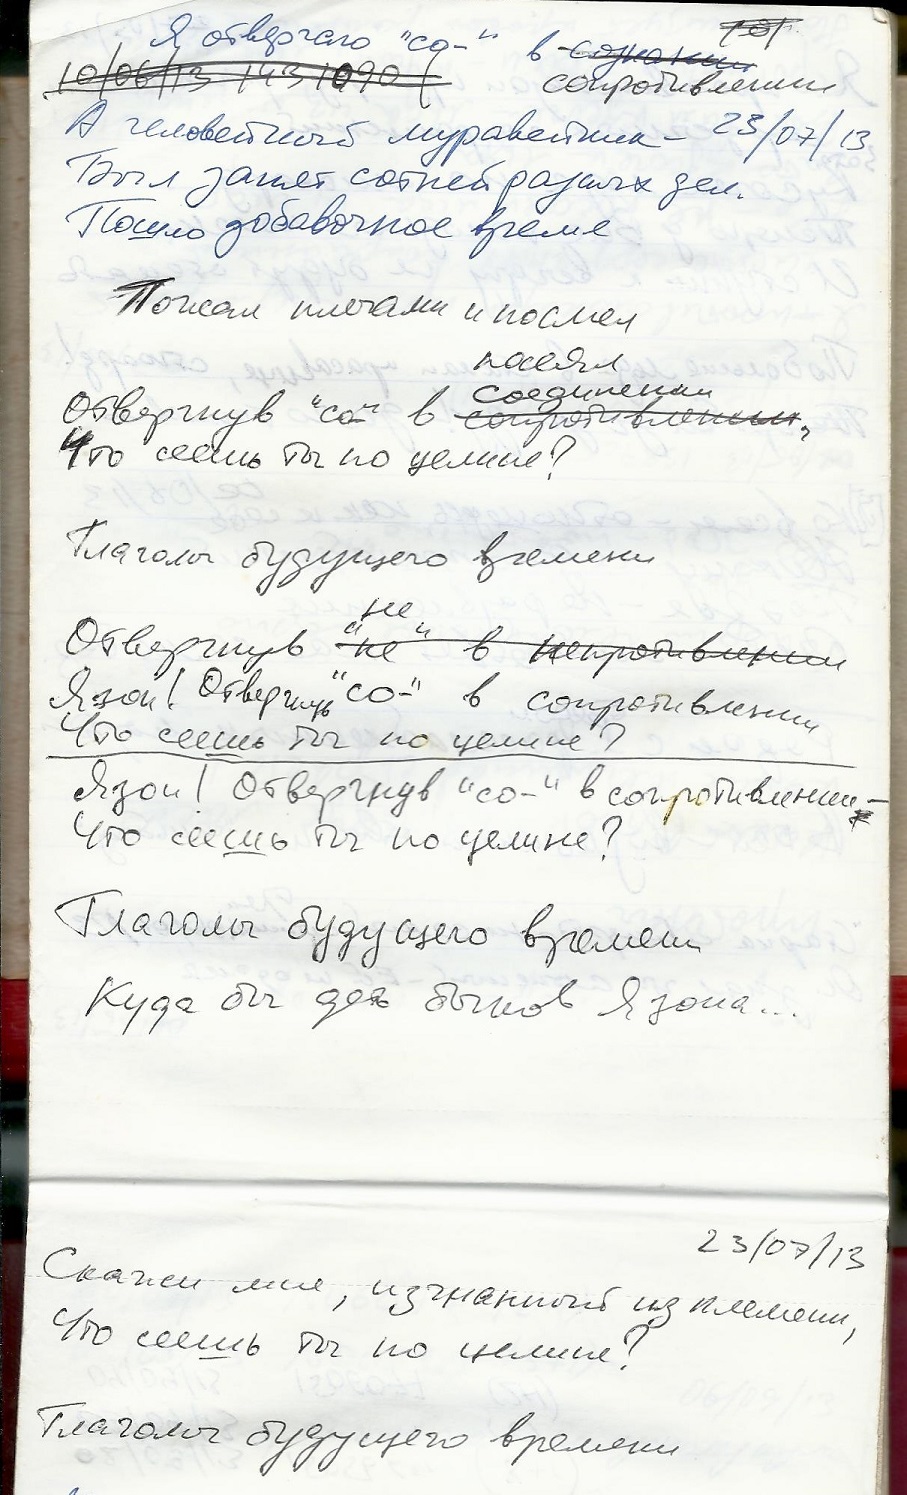 Я отвергаю "со-" в сознании
сопротивлении
10/06/13
А человечный муравейник – 23/07/13
Был занят сотней разных дел.
Пошло добавочное время
Пожал плечами и посмел
посеял
соединении
Отвергнув "со-" в сопротивлении,
Что сеешь ты по целине?
Глаголы будущего времени
не
Отвергнув "не" в непротивлении
Язон! Отвергнув "со-" в сопротивлении
Что сеешь ты по целине?
Язон! Отвергнув "со-" в сопротивлении –
Что сеешь ты по целине?
Глаголы будущего времени
Куда бы деть быков Язона...
23/07/13
Скажи мне, изгнанный из племени,
Что сеешь ты по целине?
Глаголы будущего времени